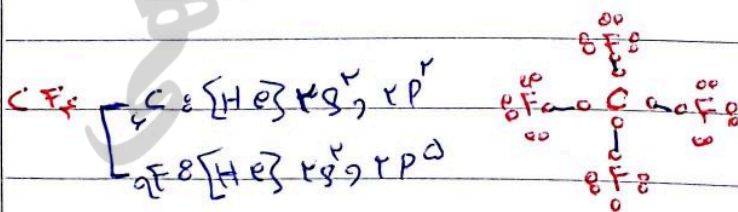 CF۴
۶C : [He] ۲s۲, ۲p۲
۹F : [He] ۲s۲, ۲p۵
F
F C F
F